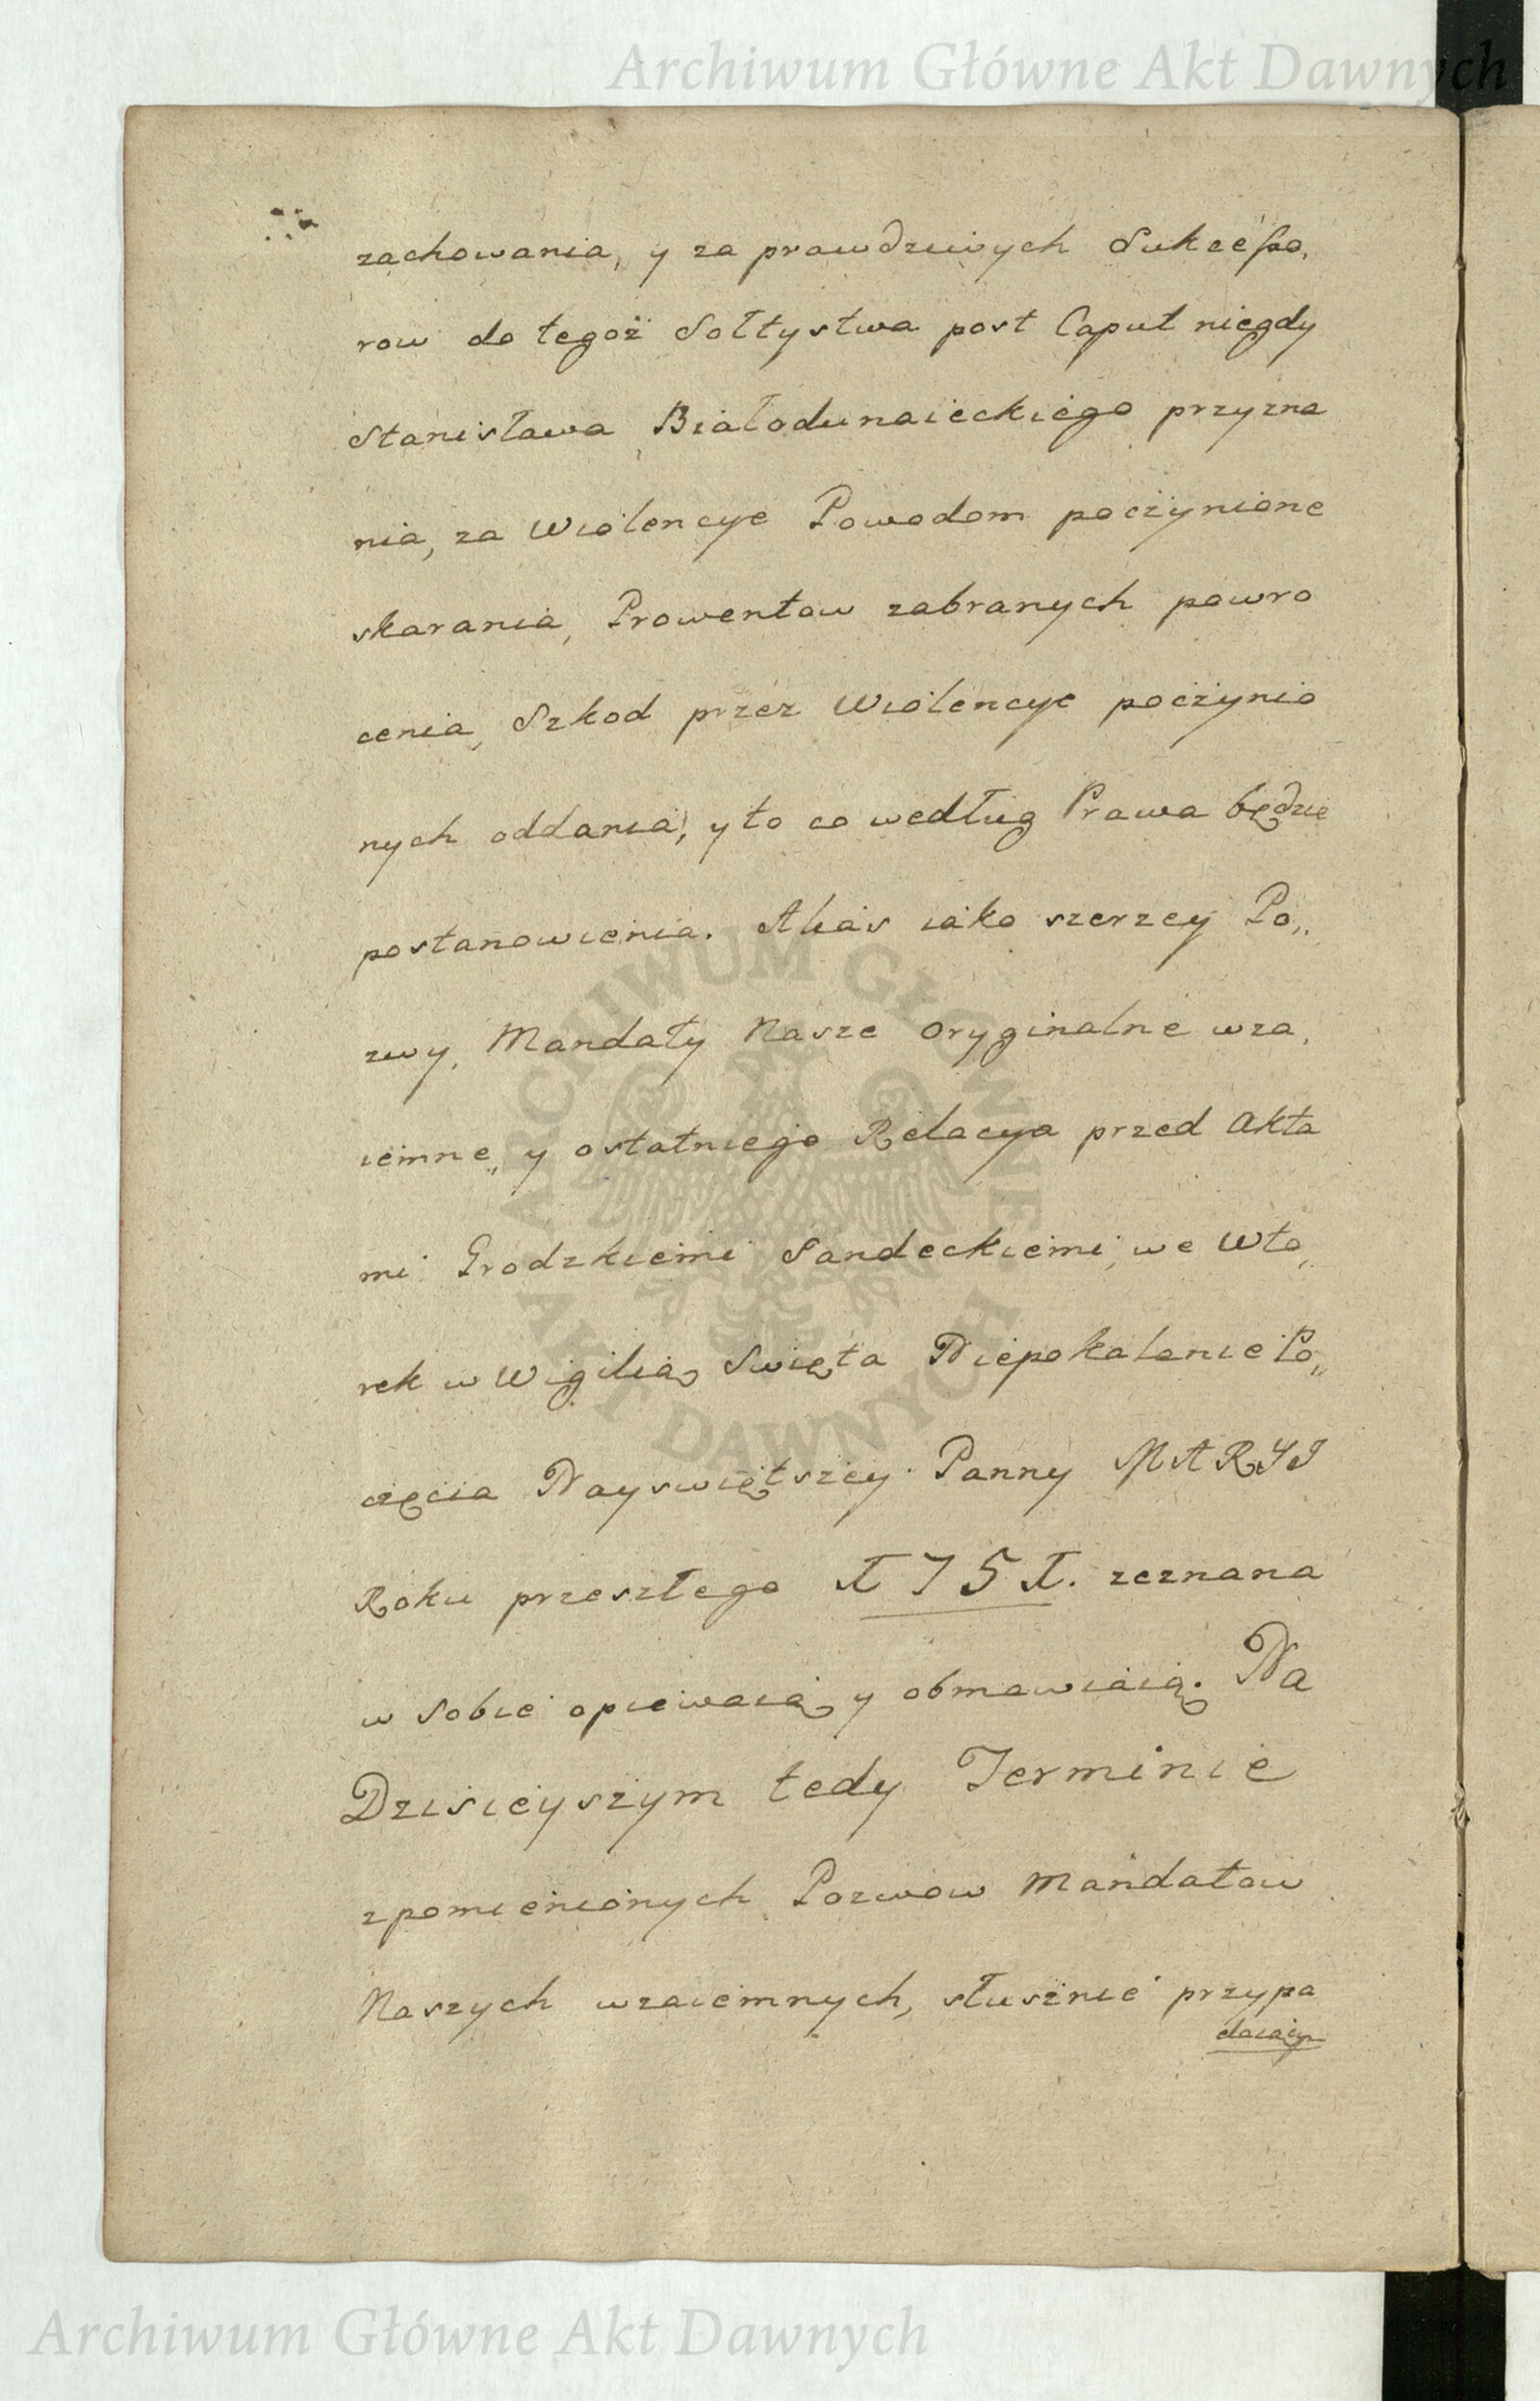 Archiwum Główne Akt Dawnych
zachowania, y za prawdziwych Sukcesso,
row do tegoż Sołtystwa post Caput niegdy
Stanisława Białodunaieckiego przyzna
nia, za Wiolencye Powodom poczynione
skarania, Prowentow zabranych powro
cenia, Szkod przez Wiolencye poczynio
nych oddania, y to co według Prawa będzie
postanowienia. Alias iako szerzey Po„
zwy, Mandaty Nasze Oryginalne wza,
iemne„ y ostatniego Relacya przed Akta
mi Grodzkiemi Sandeckiemi, we Wto„
rek w Wigilią Swięta Niepokalanie Po„
częcia Nayswiętszey Panny MARYI
Roku przeszłego 1751. zeznana
w sobie opiewaią y obmawiaią. Na
Dzisieyszym tedy Terminie
zpomienionych Pozwow Mandatow
Naszych wzaiemnych, słusznie przypa
daiący
ARCHIWUM GŁÓWNE
AKT DAWNYCH
Archiwum Główne Akt Dawnych